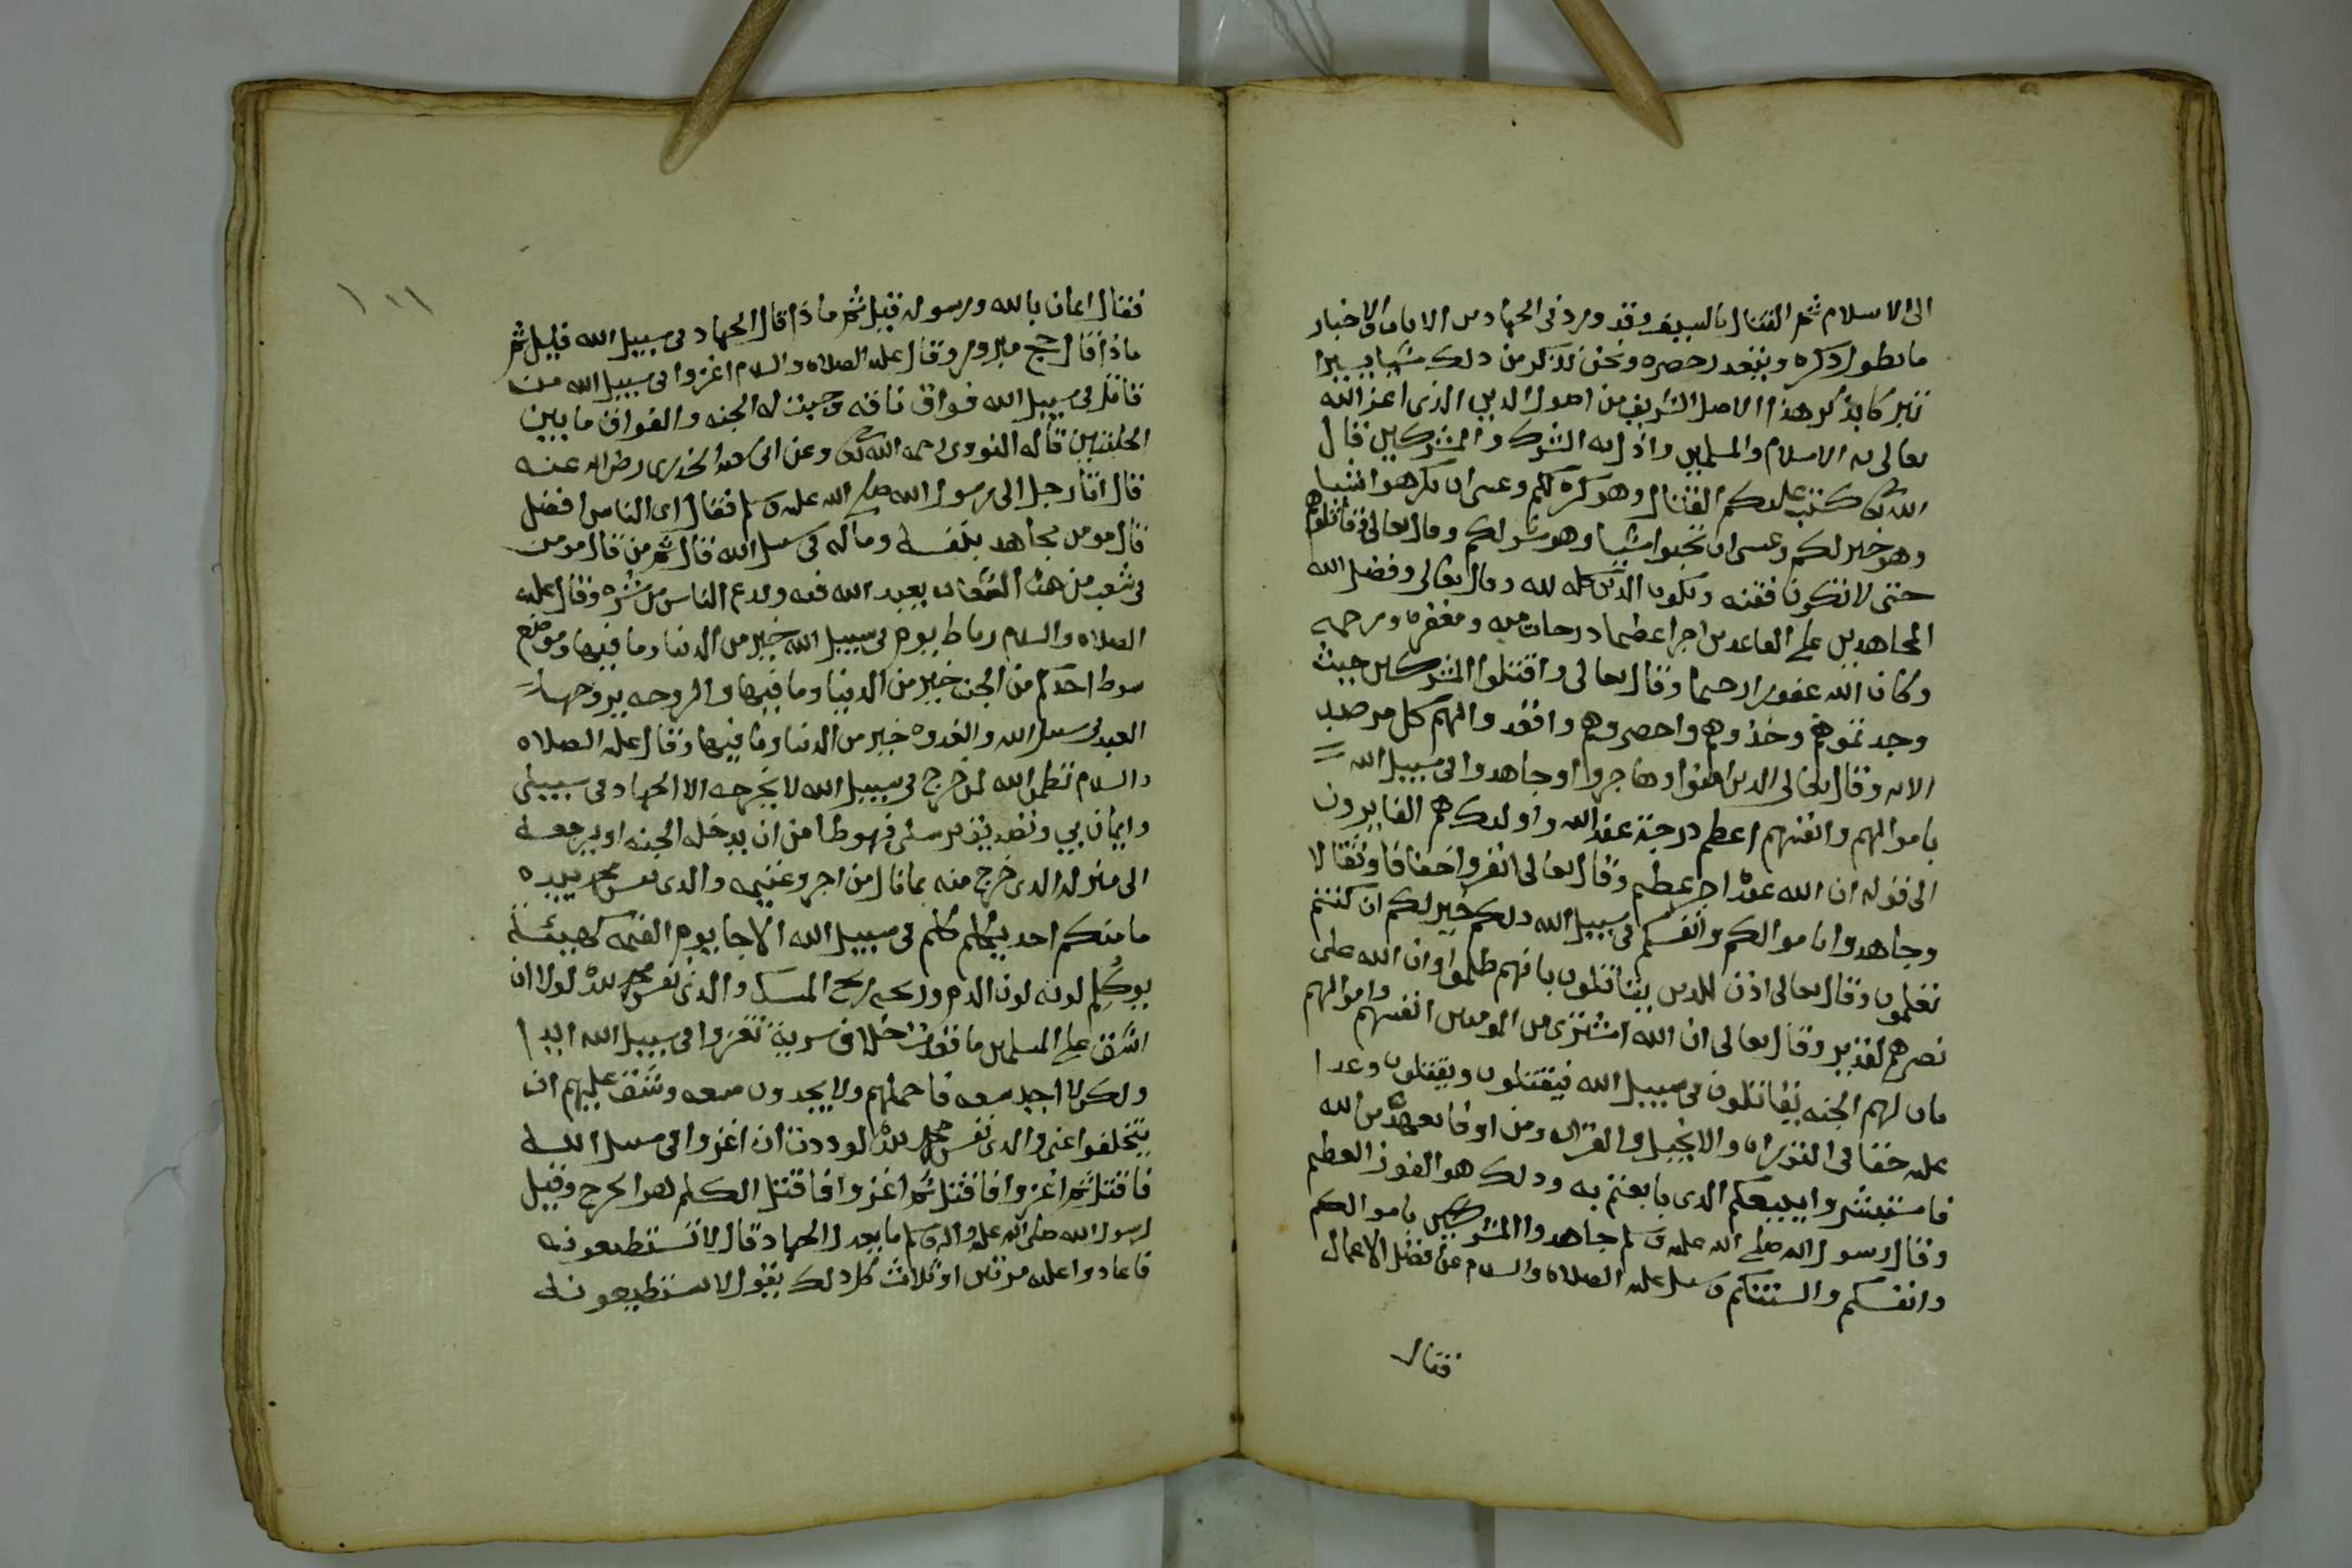 الى الاسلام ثم القتال بالسيف وقد ورد فى الجهاد من الايات والاخبار
ما يطول ذكره ويتعدد حصره ونحن نذكر من ذلك شيا يسيرا
تبركا بذكر هذا الاصل الشريف من اصول الدين الذى اعز الله
تعالى به الاسلام والمسلمين واذل به الشرك والمشركين قال
الله تعالى كتب عليكم القتال وهو كره لكم وعسى ان تكرهوا شيا
وهو خير لكم وعسى ان تحبوا شيا وهو شر لكم وقال تعالى وقاتلوهم
حتى لا تكون فتنه ويكون الدين كله لله وقال تعالى وفضل الله
المجاهدين على القاعدين اجرا عظيما درجات منه ومغفره ورحمه
وكان الله غفورا رحيما وقال تعالى واقتلوا المشركين حيث
وجدتموهم وخذوهم واحصروهم واقعدوا لهم كل مرصد
الايه وقال تعالى الذين امنوا وهاجروا وجاهدوا فى سبيل الله
باموالهم وانفسهم اعظم درجة عند الله واولئك هم الفايزون
الى قوله ان الله عنده اجر عظيم وقال تعالى انفروا خفافا وثقالا
وجاهدوا باموالكم وانفسكم فى سبيل الله ذلكم خير لكم ان كنتم
تعلمون وقال تعالى اذن للذين يقاتلون بانهم ظلموا وان الله على
نصرهم لقدير وقال تعالى ان الله اشترى من المومنين انفسهم واموالهم
بان لهم الجنه يقاتلون فى سبيل الله فيقتلون ويقتلون وعدا
عليه حقا فى التوراه والانجيل والقران ومن اوفا بعهده من الله
فاستبشروا ببيعكم الذى بايعتم به وذلك هو الفوز العظيم
وقال رسول الله صلى الله عليه وسلم جاهدوا المشركين باموالكم
وانفسكم والسنتكم وسيل عليه الصلاه والسلام عن افضل الاعمال
فقال
١٠١
فقال ايمان بالله ورسوله قيل ثم ماذا قال الجهاد فى سبيل الله قيل ثم
ماذا قال حج مبرور وقال عليه الصلاه والسلام اغزوا فى سبيل الله من
قاتل فى سبيل الله فواق ناقه وجبت له الجنه والفواق ما بين
الحلبتين قاله النووى رحمه الله تعالى وعن ابى سعيد الخدرى رضى الله عنه
قال اتا رجل الى رسول الله صلى الله عليه وسلم فقال اى الناس افضل
قال مومن مجاهد بنفسه وماله فى سبيل الله قال ثم من قال مومن
فى شعب من هذه الشعاب يعبد الله فيه ويدع الناس من شره وقال عليه
الصلاه والسلام رباط يوم فى سبيل الله خير من الدنيا وما فيها وموضع
سوط احدكم من الجنه خير من الدنيا وما فيها والروحه يروحها
العبد فى سبيل الله والغدوه خير من الدنيا وما فيها وقال عليه الصلاه
والسلام تضمن الله لمن خرج فى سبيل الله لا يخرجه الا الجهاد فى سبيلى
وايمان بي وتصديق برسلى فهو ضامن ان يدخله الجنه او يرجعه
الى منزله الذى خرج منه بما نال من اجر وغنيمه والذى نفس محمد بيده
ما منكم احد يكلم كلم فى سبيل الله الا جا يوم القيمه كهيئته
يوم كلم لونه لون الدم وريحه ريح المسك والذى نفس محمد بيده لولا ان
اشق على المسلمين ما قعدت خلاف سرية تغزوا فى سبيل الله ابدا
ولكن لا اجد سعه فاحملهم ولا يجدون سعه وشق عليهم ان
يتخلفوا عنى والذى نفس محمد بيده لوددت ان اغزوا فى سبيل الله
فاقتل ثم اغزوا فاقتل ثم اغزوا فاقتل الكلم هو الجرح وقيل
لرسول الله صلى الله عليه واله وسلم ما يعدل الجهاد قال لا تستطيعونه
فاعادوا عليه مرتين او ثلاث كل ذلك يقول لا تستطيعونه